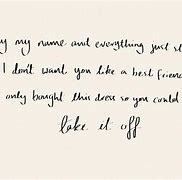 my name and everything just
I don't want you like a best friend
only bought this dress so you could
take it off